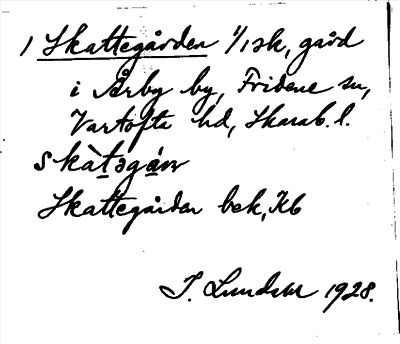 1 Skattegården 1/1 sk, gård
i Årby by, Fridene sn,
Vartofta hd, Skarab. l.
skàtəgáṇ
Skattegården bek, Kb
J. Lundahl 1928.